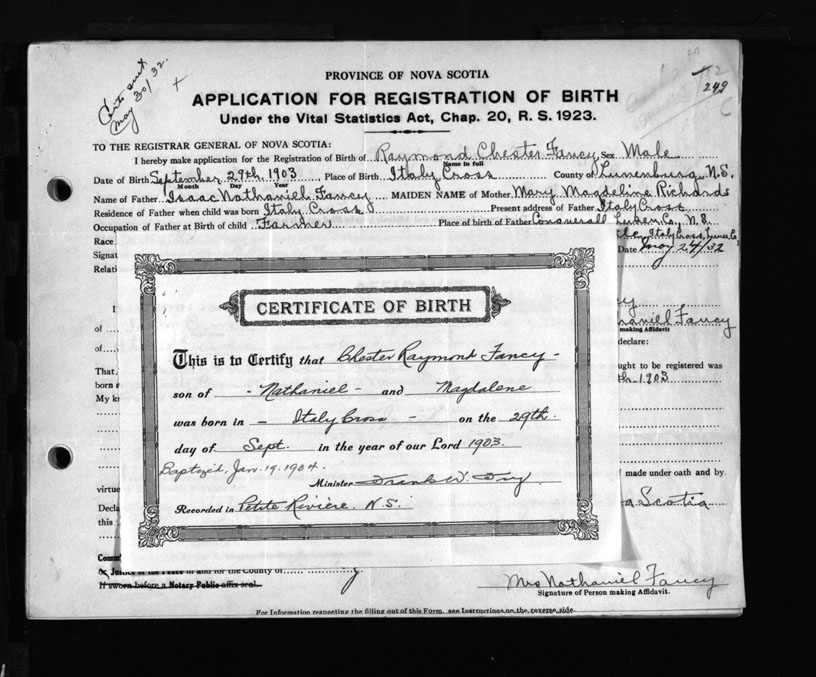 Certs sent
May 30/32.
249
PROVINCE OF NOVA SCOTIA
APPLICATION FOR REGISTRATION OF BIRTH
Under the Vital Statistics Act, Chap. 20, R. S. 1923.
TO THE REGISTRAR GENERAL OF NOVA SCOTIA:
I hereby make application for the Registration of Birth of Raymond Chester Fancy Sex Male
Name in full
Date of Birth September 29th 1903 Place of Birth Italy Cross County of Lunenburg, N.S.
Month Day Year
Name of Father Isaac Nathaniel Fancy MAIDEN NAME of Mother Mary Magdeline Richards
Residence of Father when child was born Italy Cross Present address of Father Italy Cross
Occupation of Father at Birth of child Farmer Place of birth of Father Conquerall Lunen. Co., N.S.
Race Italy Cross, Lunen. Co.
Signat Date May 24/32
Relati
of naniel Fancy
making Affidavit
of declare:
That ught to be registered was
born a th 1903
My k
CERTIFICATE OF BIRTH
This is to Certify that Chester Raymond Fancy -
son of - Nathaniel - and Magdalene
was born in - Italy Cross - on the 29th.
day of Sept. in the year of our Lord 1903.
Baptized, Jan. 19. 1904.
Minister
Recorded in Petite Rivière, N.S.
f made under oath and by
virtue
Decla a Scotia
this
Comm
or Justice of the Peace in and for the County of
If sworn before a Notary Public affix seal.
Mrs Nathaniel Fancy
Signature of Person making Affidavit.
For Information respecting the filling out of this Form, see Instructions on the reverse side.